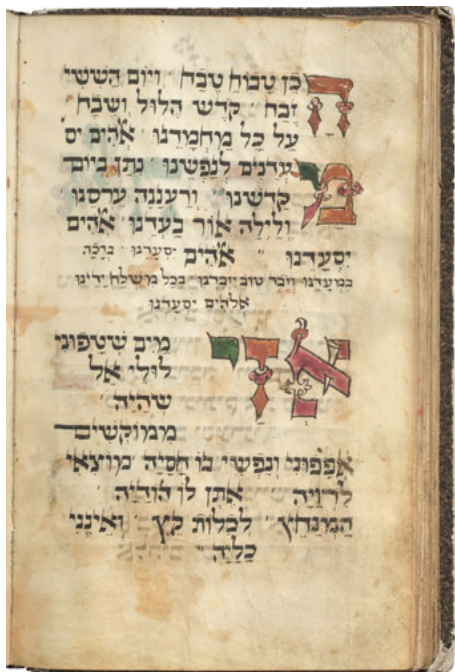 הכן טבוח טבח ויום הששי
זבח קדש הלול ושבח
על כל מחמדנו אלהים יס
מעדנים לנפשנו נתן ביום
קדשנו ורעננה ערסנו
ולילה אור בעדנו אלהים
יסעדנו אלהים יסעדנו ברכה
במעודנו וזבד טוב יזבדנו בכל משלח ידינו
אלהים יסעדנו
אזי מים שטפוני
לולי אל
שהיה
ממוקשים
אפפוני ונפשי בו חסיה מוצאי
לרויה אתן לו הודיה
המנחץ לכלות קץ ואינני
כליה